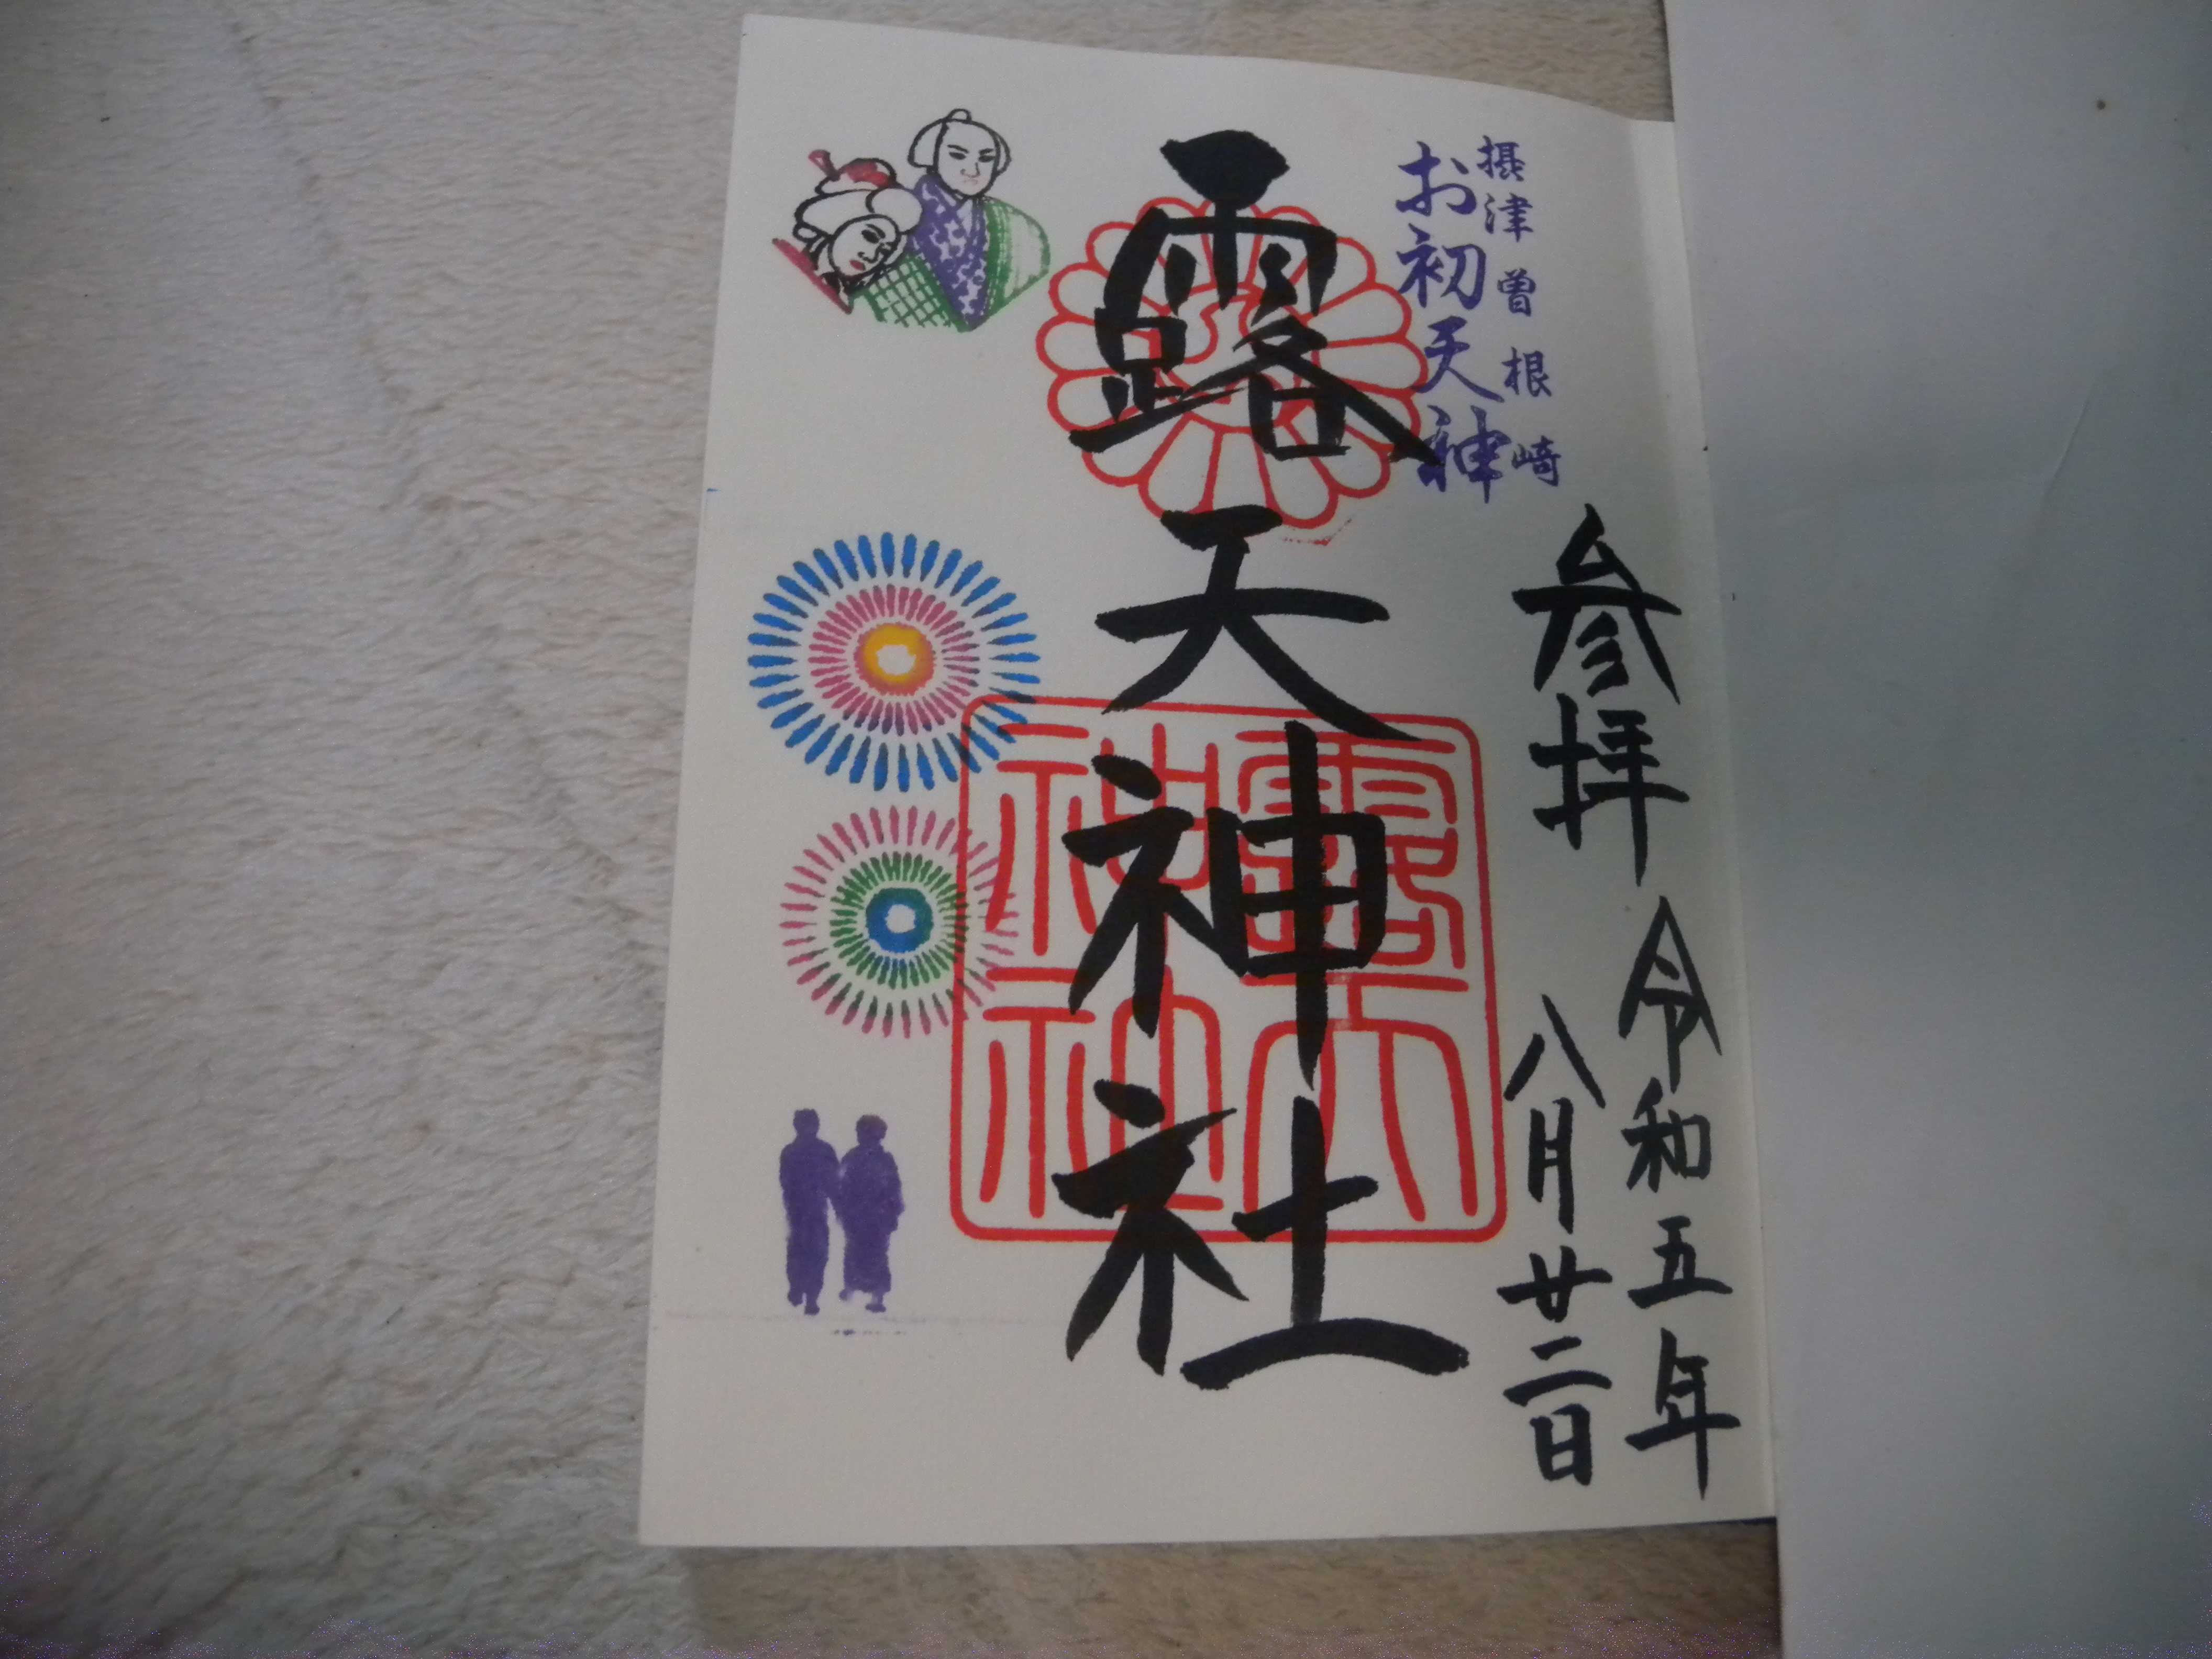 摂津曽根崎
お初天神
参拝
令和五年
八月廿二日
露天神社
露天
神社